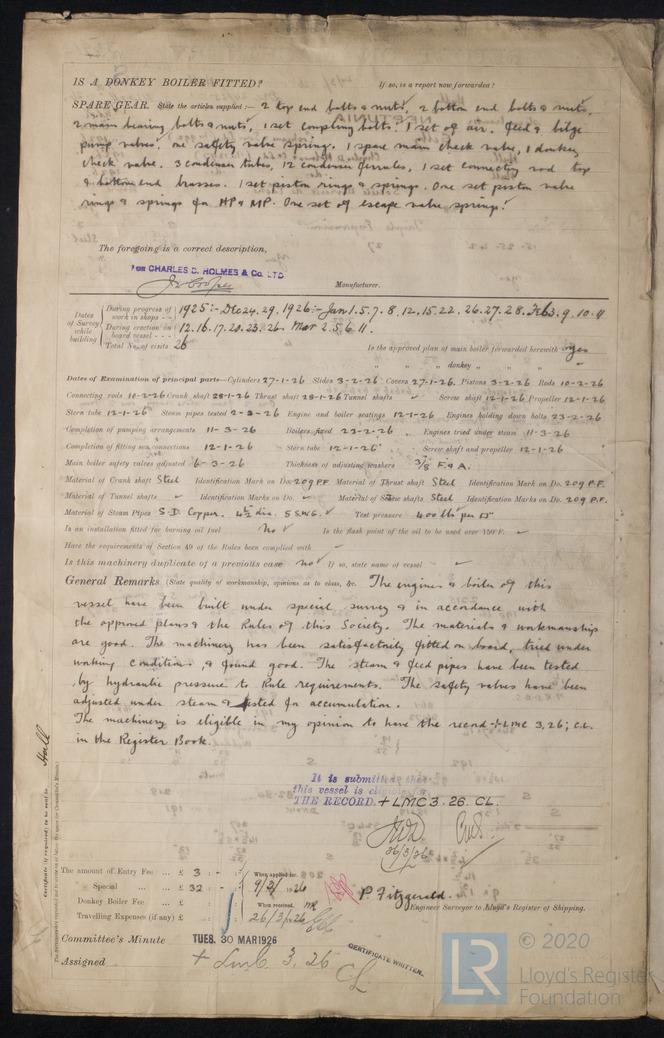 IS A DONKEY BOILER FITTED? If so, is a report now forwarded?
SPARE GEAR. State the articles supplied :— 2 top end bolts & nuts, 2 bottom end bolts & nuts,
2 main bearing bolts & nuts, 1 set coupling bolts. 1 set of air, feed & bilge
pump valves, one safety valve spring. 1 spare main check valve, 1 donkey
check valve. 3 condenser tubes, 12 condenser ferrules, 1 set connecting rod top
& bottom end brasses. 1 set piston rings & springs. One set piston valve
rings & springs for HP & MP. One set of escape valve springs.
The foregoing is a correct description,
FOR CHARLES D. HOLMES & Co. LTD
Manufacturer.
Dates of Survey while building
During progress of work in shops - - 1925:- Dec 24. 29. 1926:- Jan 1. 5. 7. 8. 12. 15. 22. 26. 27. 28. Feb 3. 9. 10. 11
During erection on board vessel - - - 12. 16. 17. 20. 23. 26. Mar 2. 5. 6. 11.
Total No. of visits 26
Is the approved plan of main boiler forwarded herewith yes
" " " donkey " "
Dates of Examination of principal parts—Cylinders 27-1-26 Slides 3-2-26 Covers 27-1-26. Pistons 3-2-26 Rods 10-2-26
Connecting rods 10-2-26 Crank shaft 28-1-26 Thrust shaft 28-1-26 Tunnel shafts Screw shaft 12-1-26 Propeller 12-1-26
Stern tube 12-1-26 Steam pipes tested 2-3-26 Engine and boiler seatings 12-1-26 Engines holding down bolts 23-2-26
Completion of pumping arrangements 11-3-26 Boilers fixed 23-2-26 Engines tried under steam 11-3-26
Completion of fitting sea connections 12-1-26 Stern tube 12-1-26 Screw shaft and propeller 12-1-26
Main boiler safety valves adjusted 6-3-26 Thickness of adjusting washers 3/8 F & A.
Material of Crank shaft Steel Identification Mark on Do. 209 PF Material of Thrust shaft Steel Identification Mark on Do. 209 P.F.
Material of Tunnel shafts Identification Marks on Do. Material of Screw shafts Steel Identification Marks on Do. 209 P.F.
Material of Steam Pipes S.D. Copper. 4½ dia. 5 SWG. Test pressure 400 lbs per □"
Is an installation fitted for burning oil fuel No Is the flash point of the oil to be used over 150°F.
Have the requirements of Section 49 of the Rules been complied with
Is this machinery duplicate of a previous case No If so, state name of vessel
General Remarks (State quality of workmanship, opinions as to class, &c. The engines & boiler of this
vessel have been built under special survey & in accordance with
the approved plans & the Rules of this Society. The materials & workmanship
are good. The machinery has been satisfactorily fitted on board, tried under
working conditions, & found good. The steam & feed pipes have been tested
by hydraulic pressure to Rule requirements. The safety valves have been
adjusted under steam & tested for accumulation.
The machinery is eligible in my opinion to have the record + LMC 3,26; C.L.
in the Register Book.
It is submitted that
this vessel is eligible for
THE RECORD. + LMC 3. 26. CL.
26/3/26
Certificate (if required) to be sent to Hull
The amount of Entry Fee ... £ 3 : - :
Special ... ... £ 32 : - :
Donkey Boiler Fee ... £
Travelling Expenses (if any) £
When applied for,
9/3/1926
When received,
26/3/1926
P. Fitzgerald.
Engineer Surveyor to Lloyd's Register of Shipping.
Committee's Minute TUES. 30 MAR 1926
Assigned + LMC 3. 26 CL
CERTIFICATE WRITTEN.
LR © 2020
Lloyd's Register
Foundation